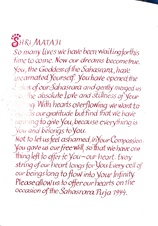 SHRI MATAJI
So many lives we have been waiting for this
time to come. Now our dreams become true.
You, the Goddess of the Sahasrara, have
incarnated Yourself. You have opened the
of our Sahasrara and gently merged us
the absolute Love and stillness of Your
With hearts overflowing we want to
our gratitude but find that we have
nothing to give You, because everything is
You and belongs to You.
Not to let us feel ashamed, in Your Compassion
You gave us our free will, so that we have one
thing left to offer to You - our heart. Every
string of our heart longs for You. Every cell of
our beings long to flow into Your Infinity.
Please allow us to offer our hearts on the
occasion of the Sahasrara Puja 1994.